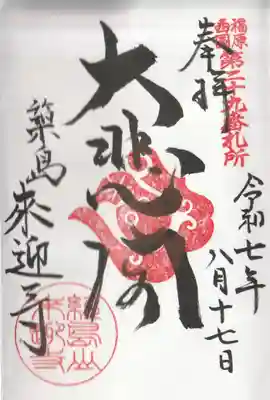 福原
西国
第二十九番札所
奉拝
令和七年
八月十七日
大悲閣
築島
来迎寺